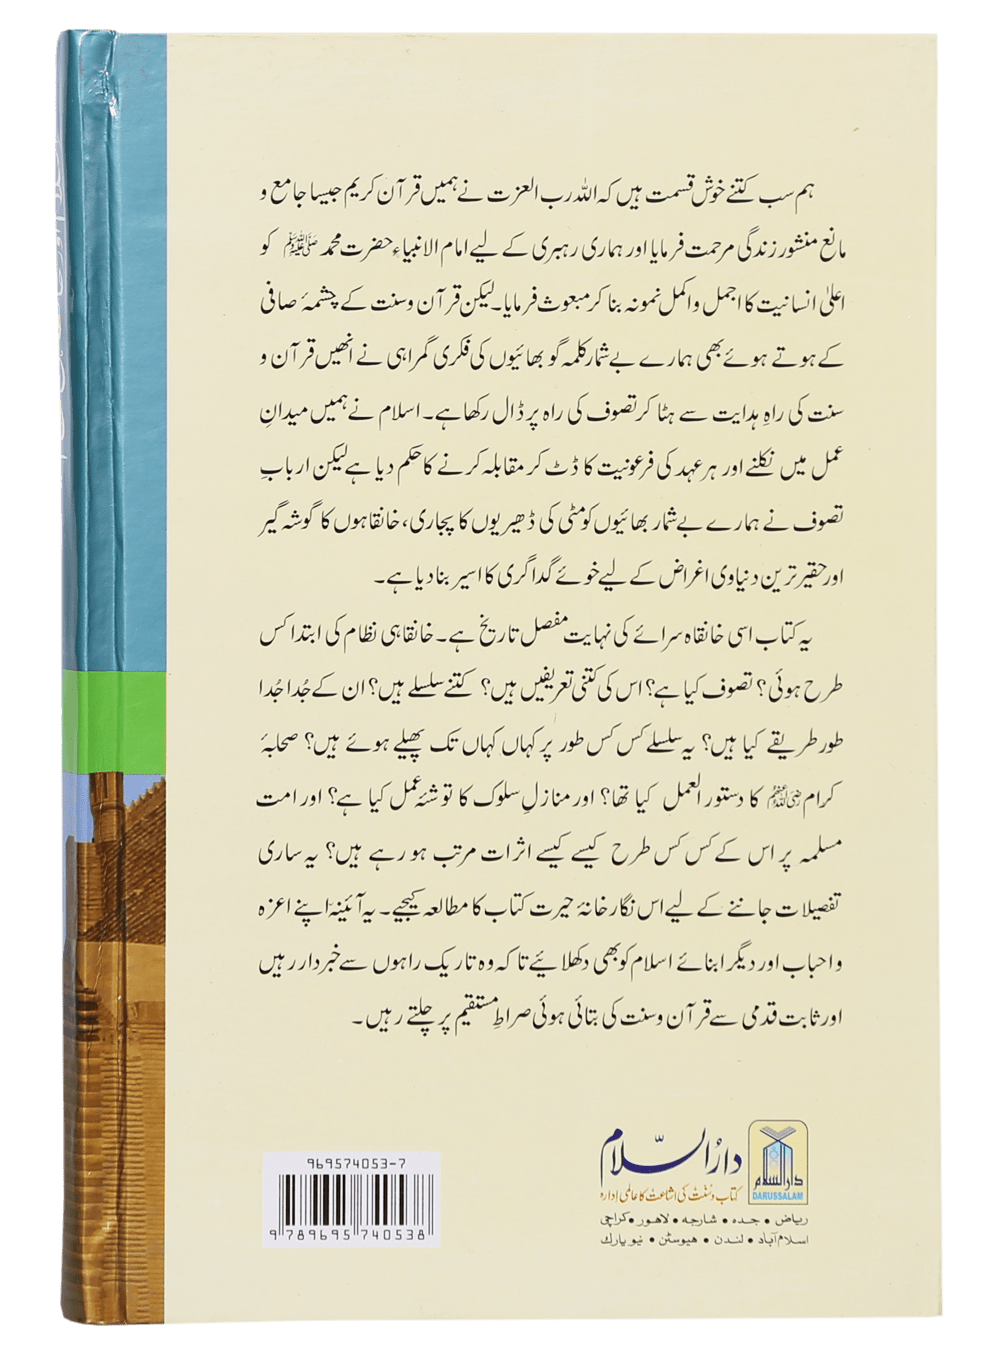 ہم سب کتنے خوش قسمت ہیں کہ اللہ رب العزت نے ہمیں قرآن کریم جیسا جامع و
مانع منشور زندگی مرحمت فرمایا اور ہماری رہبری کے لیے امام الانبیاء حضرت محمد ﷺ کو
اعلیٰ انسانیت کا اجمل و اکمل نمونہ بنا کر مبعوث فرمایا۔ لیکن قرآن و سنت کے چشمۂ صافی
کے ہوتے ہوئے بھی ہمارے بے شمار کلمہ گو بھائیوں کی فکری گمراہی نے انھیں قرآن و
سنت کی راہِ ہدایت سے ہٹا کر تصوف کی راہ پر ڈال رکھا ہے۔ اسلام نے ہمیں میدانِ
عمل میں نکلنے اور ہر عہد کی فرعونیت کا ڈٹ کر مقابلہ کرنے کا حکم دیا ہے لیکن اربابِ
تصوف نے ہمارے بے شمار بھائیوں کو مٹی کی ڈھیریوں کا پجاری، خانقاہوں کا گوشہ گیر
اور حقیر ترین دنیاوی اغراض کے لیے خوئے گداگری کا اسیر بنا دیا ہے۔
یہ کتاب اسی خانقاہ سرائے کی نہایت مفصل تاریخ ہے۔ خانقاہی نظام کی ابتدا کس
طرح ہوئی؟ تصوف کیا ہے؟ اس کی کتنی تعریفیں ہیں؟ کتنے سلسلے ہیں؟ ان کے جُدا جُدا
طور طریقے کیا ہیں؟ یہ سلسلے کس کس طور پر کہاں کہاں تک پھیلے ہوئے ہیں؟ صحابۂ
کرام رضی اللہ عنہم کا دستور العمل کیا تھا؟ اور منازلِ سلوک کا توشۂ عمل کیا ہے؟ اور امت
مسلمہ پر اس کے کس کس طرح کیسے کیسے اثرات مرتب ہو رہے ہیں؟ یہ ساری
تفصیلات جاننے کے لیے اس نگار خانۂ حیرت کتاب کا مطالعہ کیجیے۔ یہ آئینہ اپنے اعزہ
و احباب اور دیگر ابنائے اسلام کو بھی دکھلائیے تاکہ وہ تاریک راہوں سے خبردار رہیں
اور ثابت قدمی سے قرآن و سنت کی بتائی ہوئی صراطِ مستقیم پر چلتے رہیں۔
دارالسلام
کتاب و سنت کی اشاعت کا عالمی ادارہ
دارالسلام
DARUSSALAM
ریاض • جدہ • شارجہ • لاہور • کراچی
اسلام آباد • لندن • ہیوسٹن • نیو یارک
969574053-7
9 789695 740538